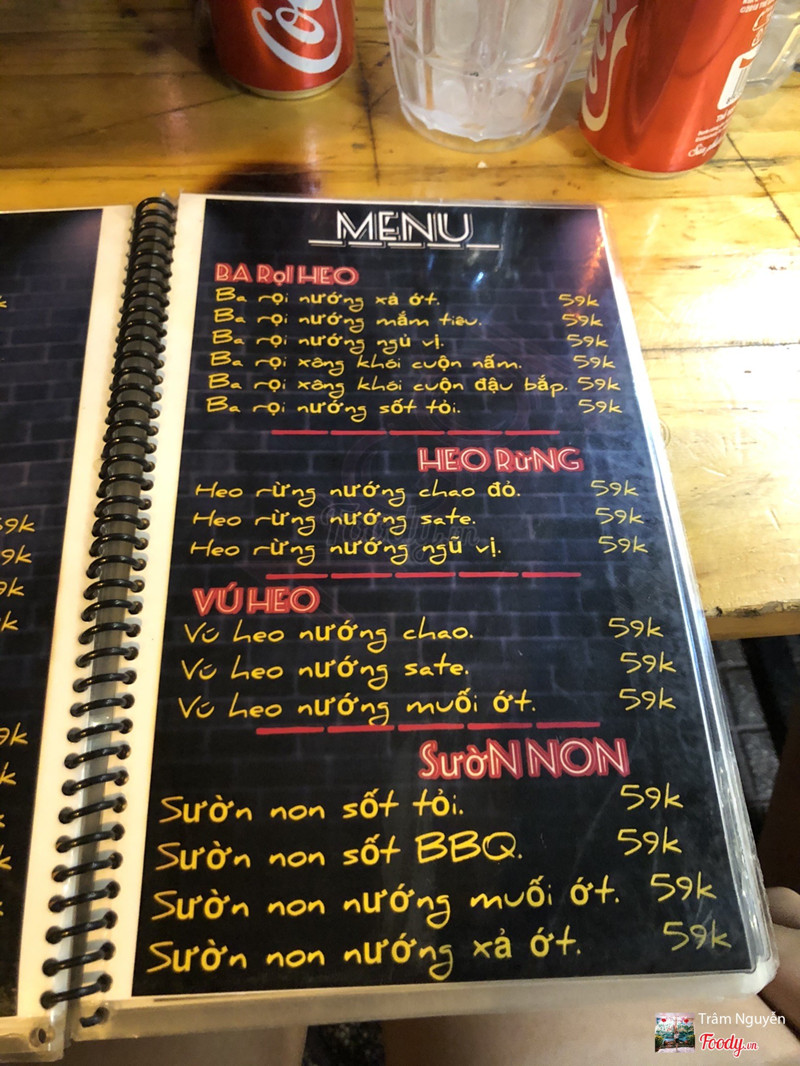 MENU
BA RỌI HEO
Ba rọi nướng xả ớt. 59k
Ba rọi nướng mắm tiêu. 59k
Ba rọi nướng ngũ vị. 59k
Ba rọi xông khói cuộn nấm. 59k
Ba rọi xông khói cuộn đậu bắp. 59k
Ba rọi nướng sốt tỏi. 59k
HEO RừNG
Heo rừng nướng chao đỏ. 59k
Heo rừng nướng sate. 59k
Heo rừng nướng ngũ vị. 59k
VÚ HEO
Vú heo nướng chao. 59k
Vú heo nướng sate. 59k
Vú heo nướng muối ớt. 59k
SườN NON
Sườn non sốt tỏi. 59k
Sườn non sốt BBQ. 59k
Sườn non nướng muối ớt. 59k
Sườn non nướng xả ớt. 59k
59k
9k
9k
k
9k
k
Foody.vn
Trâm Nguyễn
Foody.vn